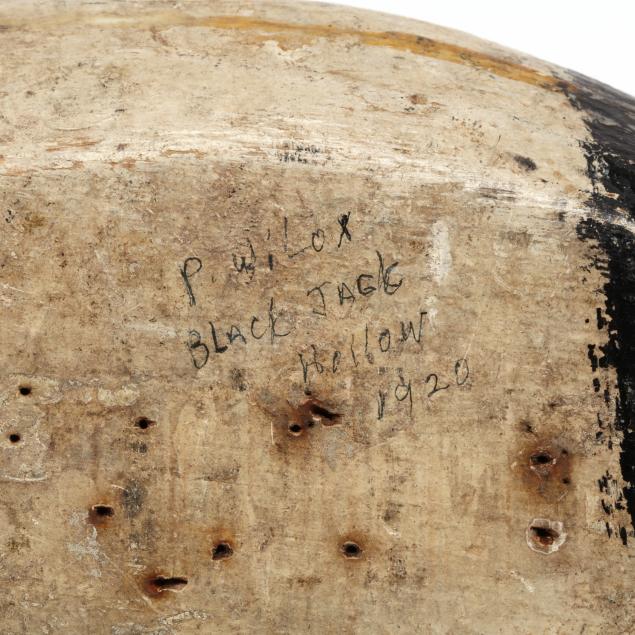 P. WiLOX
BLACK JACK
Hollow
1920